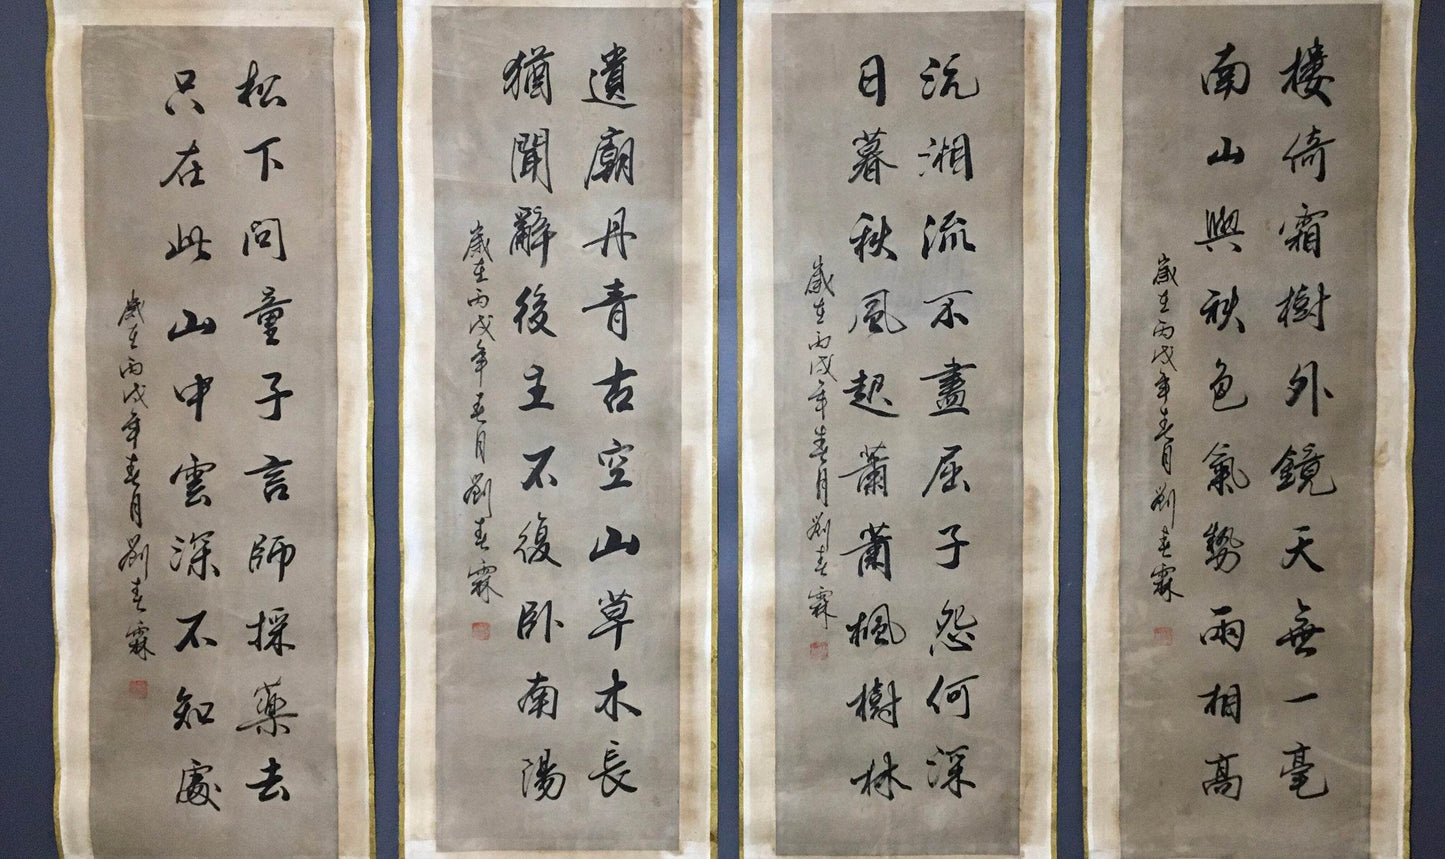 樓倚霜樹外鏡天無一毫
南山與秋色氣勢兩相高
歲在丙戌年春月劉春霖
沅湘流不盡屈子怨何深
日暮秋風起蕭蕭楓樹林
歲在丙戌年春月劉春霖
遺廟丹青古空山草木長
猶聞辭後主不復臥南陽
歲在丙戌年春月劉春霖
松下問童子言師採藥去
只在此山中雲深不知處
歲在丙戌年春月劉春霖